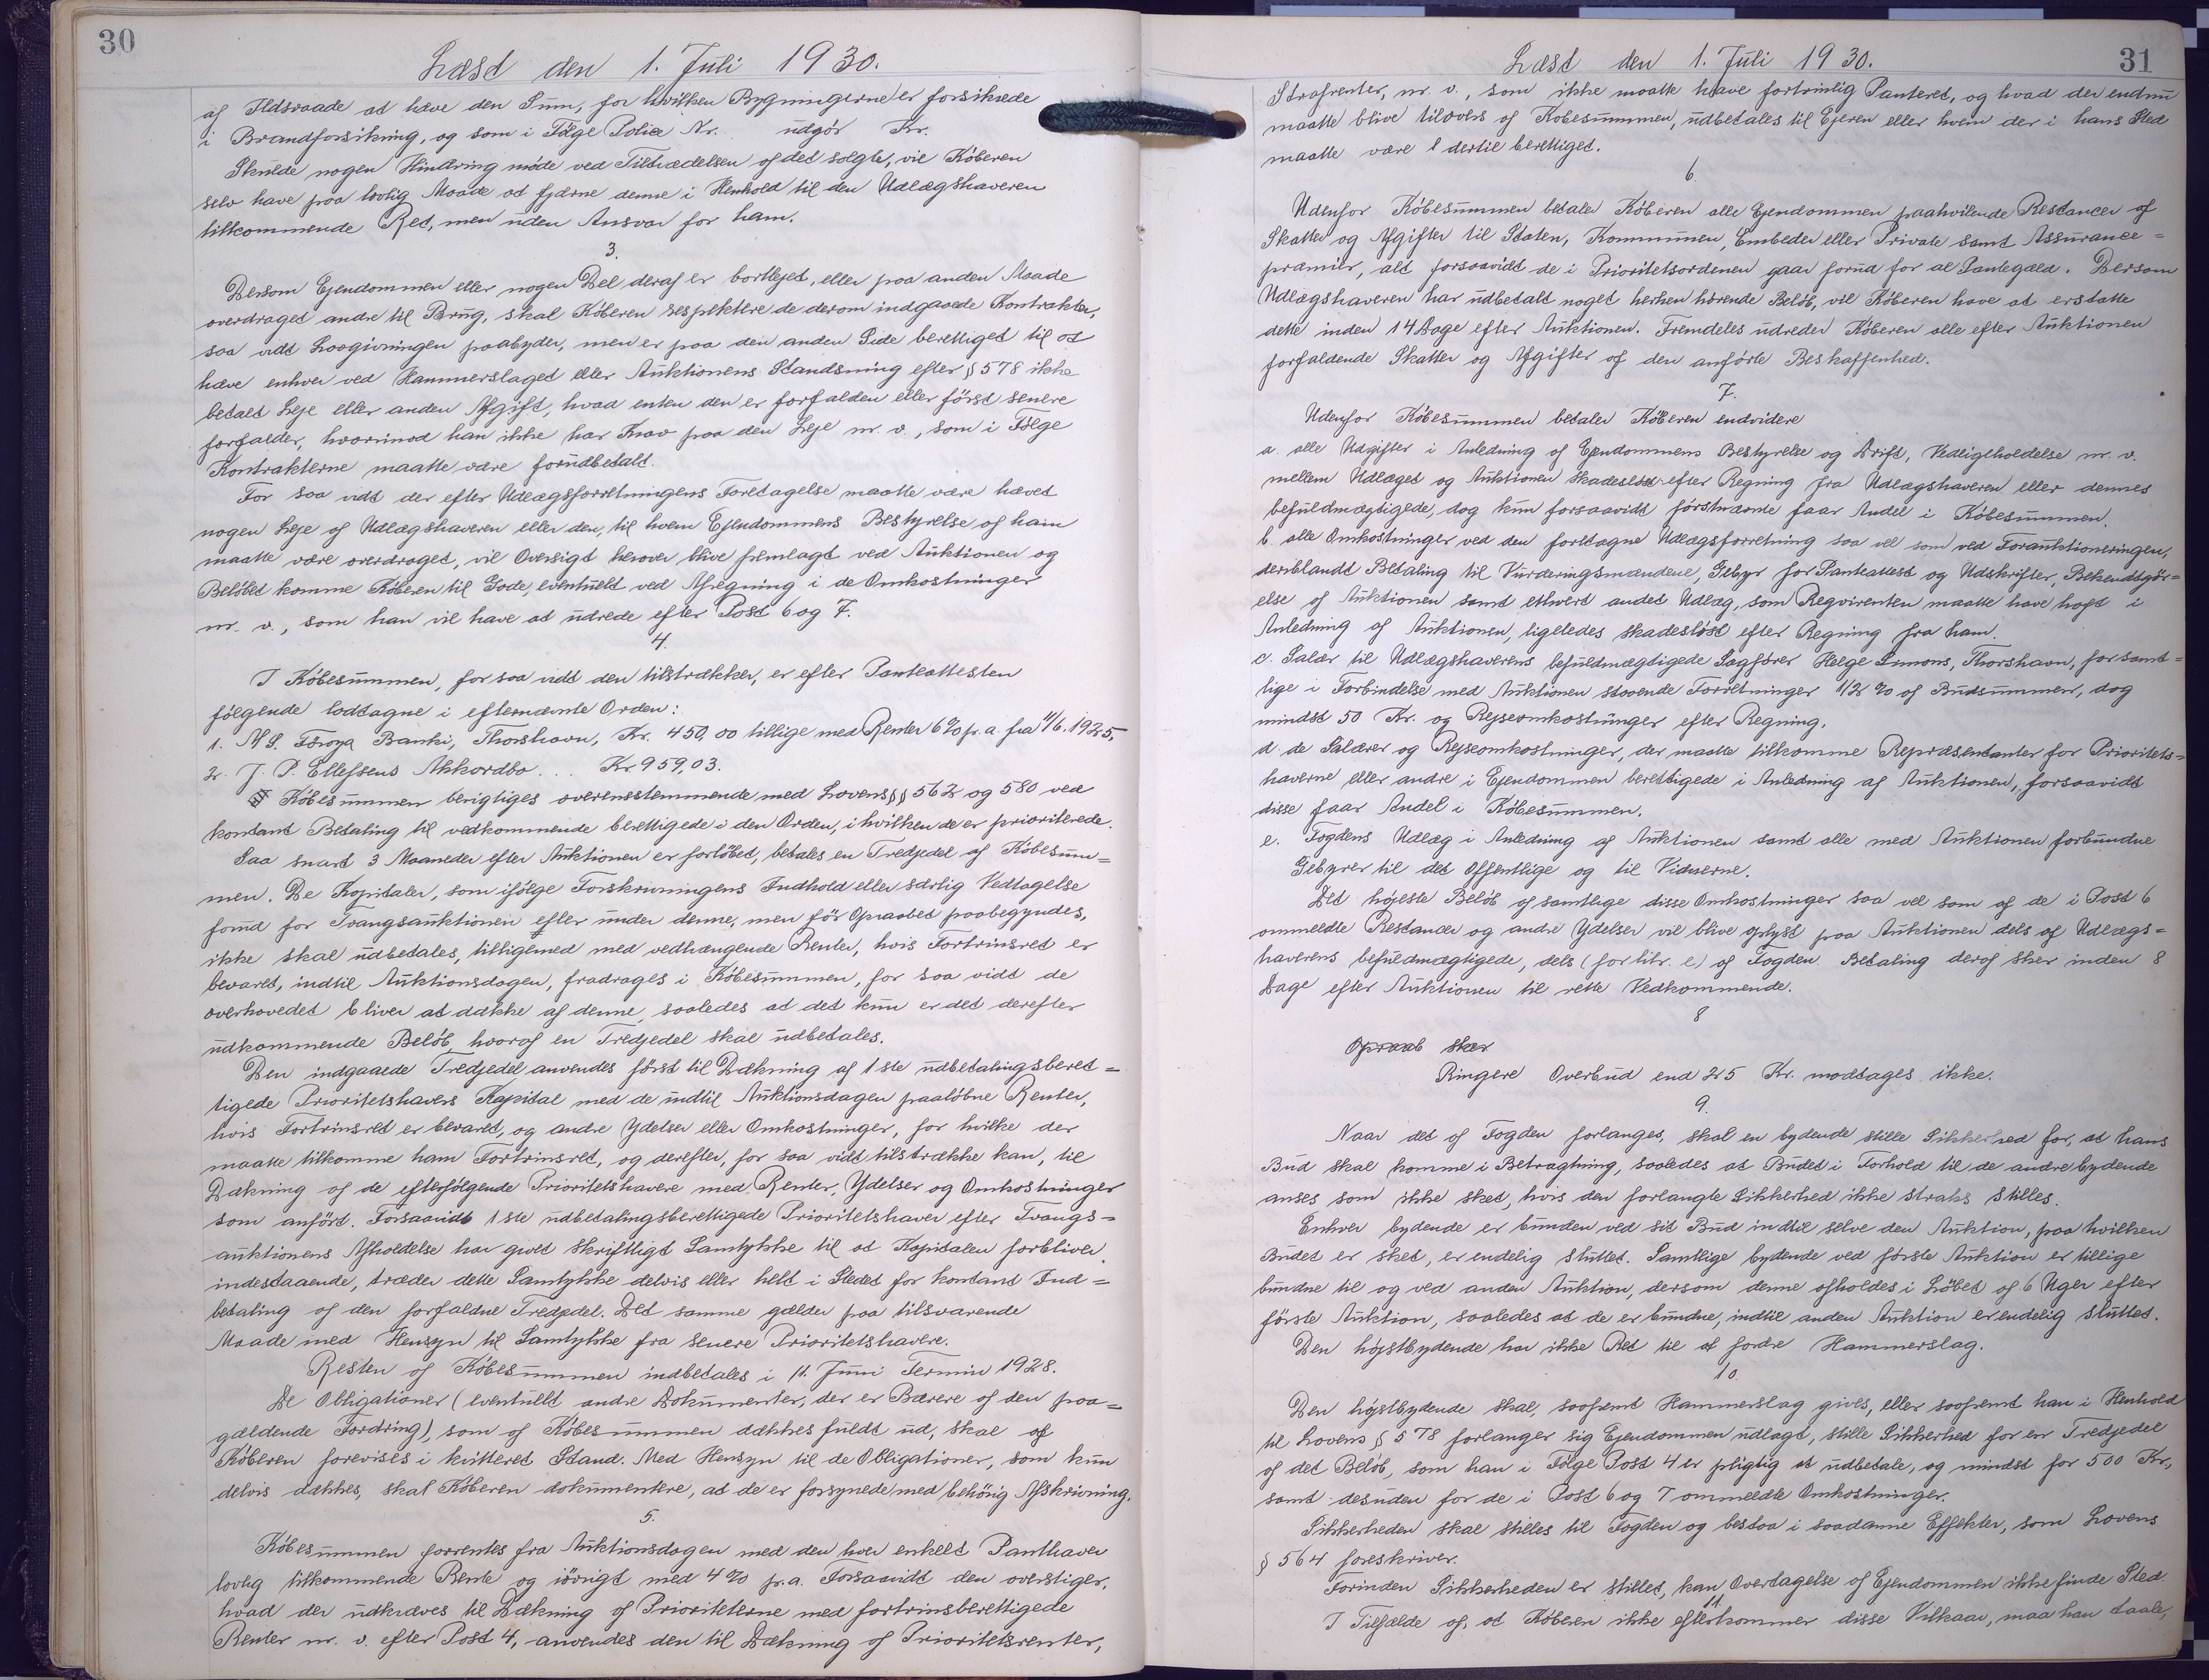 30
Læst den 1. Juli 1930.
af Ildsvaade at hæve den Sum, for hvilken Bygningerne er forsikrede
i Brandforsikring, og som i Følge Police Nr. udgör Kr.
Skulde nogen Hindring møde ved Tiltrædelsen af det solgte, vil Köberen
selv have paa lovlig Maade at fjærne denne i Henhold til den Udlægshaveren
tilkommende Ret, men uden Ansvar for ham.
3.
Dersom Ejendommen eller nogen Del deraf er bortlejet, eller paa anden Maade
overdraget andre til Brug, skal Köberen respektere de derom indgaaede Kontrakter,
saa vidt Lovgivningen paabyder, men er paa den anden Side berettiget til at
hæve enhver ved Hammerslaget eller Auktionens Standsning efter § 578 ikke
betalt Leje eller anden Afgift, hvad enten den er forfalden eller först senere
forfalder, hvorimod han ikke har Krav paa den Leje m. v., som i Følge
Kontrakterne maatte være forudbetalt.
For saa vidt der efter Udlægsforretningens Foretagelse maatte være hævet
nogen Leje af Udlægshaveren eller den, til hvem Ejendommens Bestyrelse af ham
maatte være overdraget, vil Oversigt herover blive fremlagt ved Auktionen og
Belöbet komme Köberen til Gode, eventuelt ved Afregning i de Omkostninger
m. v., som han vil have at udrede efter Post 6 og 7.
4.
I Köbesummen, for saa vidt den tilstrækker, er efter Panteattesten
følgende lodtagne i efternævnte Orden:
1. A/S. Föroya Banki, Thorshavn, Kr. 450,00 tillige med Renter 6% p. a. fra 11/6. 1925.
2. J. P. Ellefsens Akkordbo... Kr. 959,03.
Köbesummen berigtiges overensstemmende med Lovens §§ 562 og 580 ved
kontant Betaling til vedkommende berettigede i den Orden, i hvilken de er prioriterede.
Saa snart 3 Maaneder efter Auktionen er forlöbet, betales en Tredjedel af Köbesum=
men. De Kapitaler, som ifölge Forskrivningens Indhold eller særlig Vedtagelse
forud for Tvangsauktionen eller under denne, men för Opraabet paabegyndes,
ikke skal udbetales, tilligemed med vedhængende Renter, hvis Fortrinsret er
bevaret, indtil Auktionsdagen, fradrages i Köbesummen, for saa vidt de
overhovedet bliver at dække af denne, saaledes at det kun er det derefter
udkommende Belöb, hvoraf en Tredjedel skal udbetales.
Den indgaaede Tredjedel anvendes först til Dækning af 1ste udbetalingsberet=
tigede Prioritetshavers Kapital med de indtil Auktionsdagen paalöbne Renter,
hvis Fortrinsret er bevaret, og andre Ydelser eller Omkostninger, for hvilke der
maatte tilkomme ham Fortrinsret, og derefter, for saa vidt tilstrække kan, til
Dækning af de efterfölgende Prioritetshavere med Renter, Ydelser og Omkostninger
som anfört. Forsaavidt 1ste udbetalingsberettigede Prioritetshaver efter Tvangs=
auktionens Afholdelse har givet skriftligt Samtykke til at Kapitalen forbliver
indestaaende, træder dette Samtykke delvis eller helt i Stedet for kontant Ind=
betaling af den forfaldne Tredjedel. Det samme gælder paa tilsvarende
Maade med Hensyn til Samtykke fra senere Prioritetshavere.
Resten af Köbesummen indbetales i 11. Juni Termin 1928.
De Obligationer (eventuelt andre Dokumenter, der er Bærere af den paa=
gældende Fordring), som af Köbesummen dækkes fuldt ud, skal af
Köberen forevises i kvitteret Stand. Med Hensyn til de Obligationer, som kun
delvis dækkes, skal Köberen dokumentere, at de er forsynede med behörig Afskrivning.
5.
Köbesummen forrentes fra Auktionsdagen med den hver enkelt Panthaver
lovlig tilkommende Rente og iövrigt med 4% p. a. Forsaavidt den overstiger,
hvad der udkræves til Dækning af Prioriteterne med fortrinsberettigede
Renter m. v. efter Post 4, anvendes den til Dækning af Prioritetsrenter,
31
Læst den 1. Juli 1930.
Strafrenter, m. v., som ikke maatte have fortrinlig Panteret, og hvad der endnu
maatte blive tilovers af Kobesummen, udbetales til Ejeren eller hvem der i hans Sted
maatte være dertil berettiget.
6.
Udenfor Köbesummen betaler Köberen alle Ejendommen paahvilende Restancer af
Skatter og Afgifter til Staten, Kommunen, Embeder eller Private samt Assurance=
præmier, alt forsaavidt de i Prioritetsordenen gaar forud for al Pantegæld. Dersom
Udlægshaveren har udbetalt noget herhen hörende Belöb, vil Köberen have at erstatte
dette inden 14 Dage efter Auktionen. Fremdeles udreder Köberen alle efter Auktionen
forfaldende Skatter og Afgifter af den anförte Beskaffenhed.
7.
Udenfor Köbesummen betaler Köberen endvidere
a. alle Udgifter i Anledning af Ejendommens Bestyrelse og Drift, Vedligeholdelse m. v.
mellem Udlæget og Auktionen skadeslöst efter Regning fra Udlægshaveren eller dennes
befuldmægtigede, dog kun forsaavidt förstnævnte faar Andel i Köbesummen.
b. alle Omkostninger ved den foretagne Udlægsforretning saa vel som ved Forauktioneringen,
deriblandt Betaling til Vurderingsmændene, Gebyr for Panteattest og Udskrifter, Bekendtgör=
else af Auktionen samt ethvert andet Udlæg, som Rekvirenten maatte have haft i
Anledning af Auktionen, ligeledes skadeslöst efter Regning fra ham.
c. Salær til Udlægshaverens befuldmægtigede Sagfører Helge Simons, Thorshavn, for samt=
lige i Forbindelse med Auktionen staaende Forretninger 1/2 % af Budsummen, dog
mindst 50 Kr. og Rejseomkostninger efter Regning.
d. de Salærer og Rejseomkostninger, der maatte tilkomme Repræsentanter for Prioritets=
haverne eller andre i Ejendommen berettigede i Anledning af Auktionen, forsaavidt
disse faar Andel i Köbesummen.
e. Fogdens Udlæg i Anledning af Auktionen samt alle med Auktionen forbundne
Gebyrer til det Offentlige og til Vidnerne.
Det höjeste Belöb af samtlige disse Omkostninger saa vel som af de i Post 6
ommeldte Restancer og andre Ydelser vil blive oplyst paa Auktionen dels af Udlægs=
haverens befuldmægtigede, dels (for litr. e) af Fogden. Betaling deraf sker inden 8
Dage efter Auktionen til rette Vedkommende.
8
Opraab sker
Ringere Overbud end 25 Kr. modtages ikke.
9.
Naar det af Fogden forlanges, skal en bydende stille Sikkerhed for, at hans
Bud skal komme i Betragtning, saaledes at Budet i Forhold til de andre bydende
anses som ikke sket, hvis den forlangte Sikkerhed ikke straks stilles.
Enhver bydende er bunden ved sit Bud indtil selve den Auktion, paa hvilken
Budet er sket, er endelig sluttet. Samtlige bydende ved første Auktion er tillige
bundne til og ved anden Auktion, dersom denne afholdes i Löbet af 6 Uger efter
förste Auktion, saaledes at de er bundne, indtil anden Auktion er endelig sluttet.
Den höjstbydende har ikke Ret til at fordre Hammerslag.
10.
Den höjstbydende skal, saafremt Hammerslag gives, eller saafremt han i Henhold
til Lovens § 578 forlanger sig Ejendommen udlagt, stille Sikkerhed for en Tredjedel
af det Belöb, som han i Følge Post 4 er pligtig at udbetale, og mindst for 500 Kr.,
samt desuden for de i Post 6 og 7 ommeldte Omkostninger.
Sikkerheden skal stilles til Fogden og bestaa i saadanne Effekter, som Lovens
§ 564 foreskriver.
Forinden Sikkerheden er stillet, kan Overtagelse af Ejendommen ikke finde Sted.
11.
I Tilfælde af, at Köberen ikke efterkommer disse Vilkaar, maa han taale,